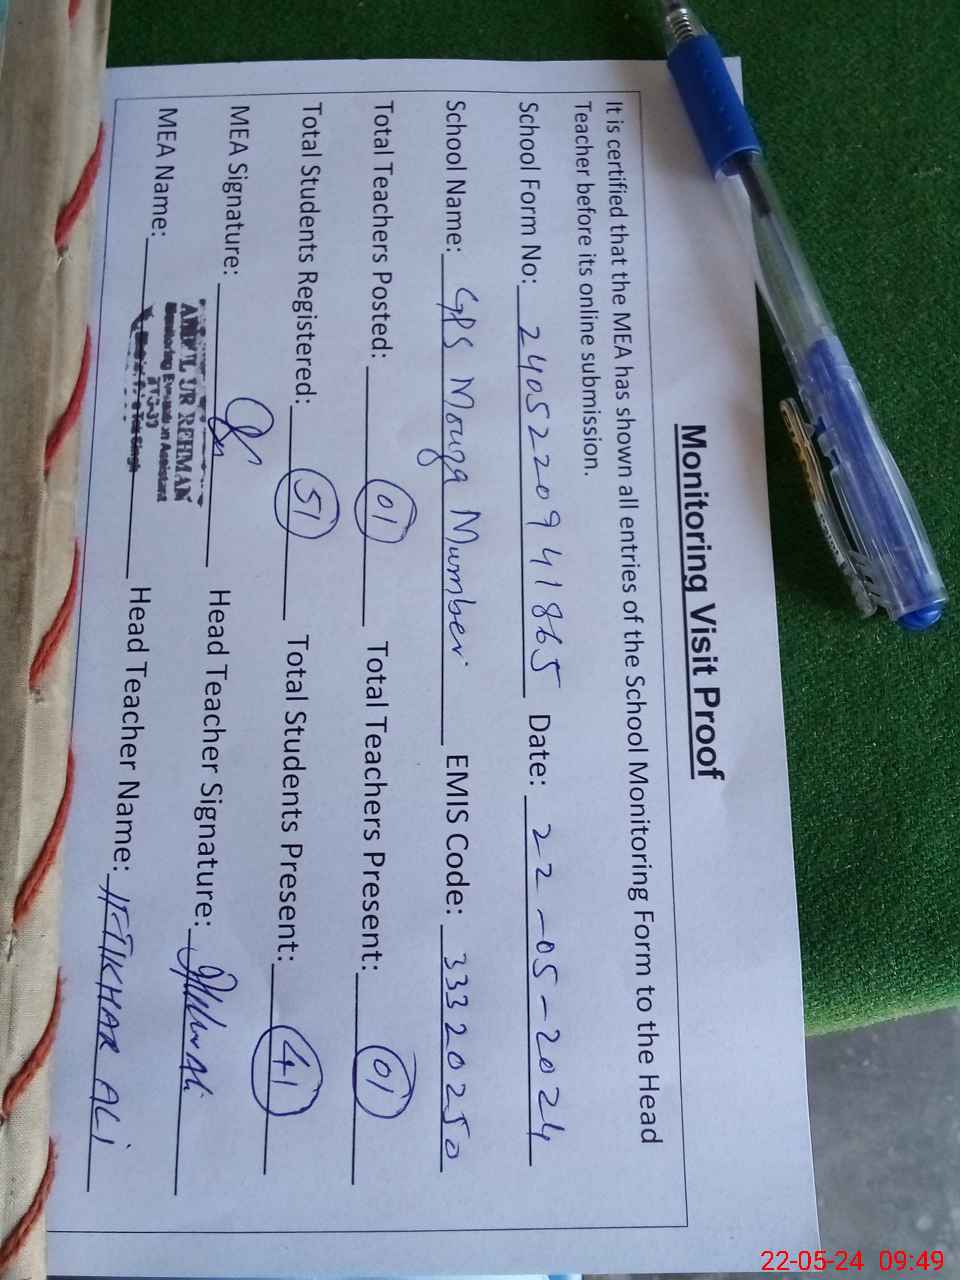 Monitoring Visit Proof
It is certified that the MEA has shown all entries of the School Monitoring Form to the Head
Teacher before its online submission.
School Form No: 240522094 1865 Date: 22-05-2024
School Name: GPS Mouza Mumber EMIS Code: 33320250
Total Teachers Posted: 01 Total Teachers Present: 01
Total Students Registered: 51 Total Students Present: 41
MEA Signature: Head Teacher Signature:
UR REHMAN
Monitoring Evaluation Assistant
MEA Name: Head Teacher Name: IFTIKHAR ALI
22-05-24 09:49